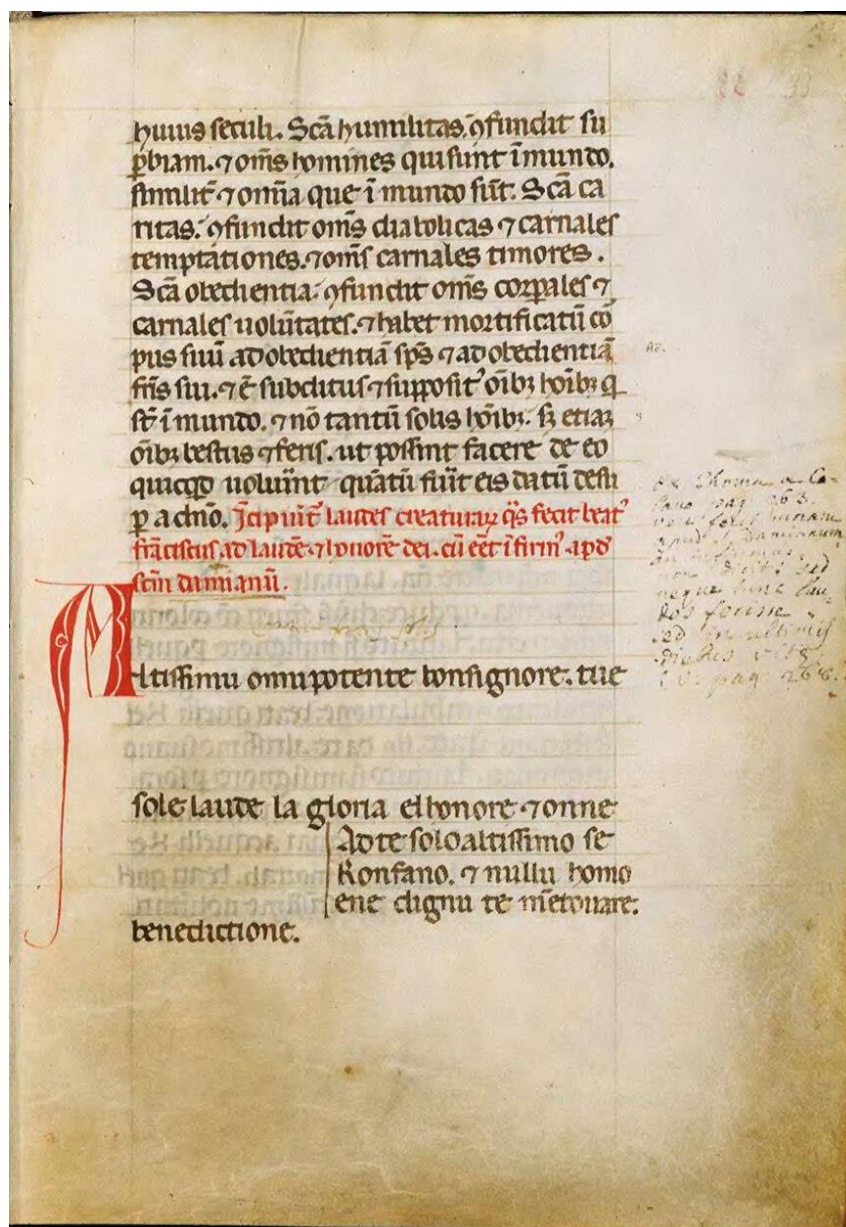 huius seculi. Scā humilitas ꝯfundit su
ꝑbiam. ⁊ om̄s homines qui sunt ī mundo.
similit̄ ⁊ om̄ia que ī mundo sūt. Scā ca
ritas. ꝯfundit om̄s diabolicas ⁊ carnales
temptationes. ⁊ om̄s carnales timores.
Scā obedientia. ꝯfundit om̄s corꝑales ⁊
carnales uolūtates. ⁊ habet mortificatū cor
pus suū ad obedientiā sp̄s ⁊ ad obedientiā
fr̄is sui. ⁊ ē subditus ⁊ supposit᾽ oībꝫ hoībꝫ q̄
st̄ ī mundo. ⁊ nō tantū solis hoībꝫ. sꝫ etiaꝫ
oībꝫ bestiis ⁊ feris. ut possint facere de eo
quicqd uoluīnt quātū fūit eis datū desu
ꝑ a dn̄o. Īcipiūt laudes creaturaꝝ q̄s fecit beat᾽
frāciscus ad laudē ⁊ honorē dei. cū eēt ī firm᾽ apđ
scm̄ damianū.
Altissimu omnipotente bonsignore. tue
sole laude la gloria elhonore ⁊ onne
Ad te solo altissimo se
Konfano. ⁊ nullu homo
ene dignu te m̄etouare.
benedictione.
ex Thoma a Ce
lano pag 268.
non
sed
neque hunc lau
des fecisse
sed in ultimis
diebus
pag 268.